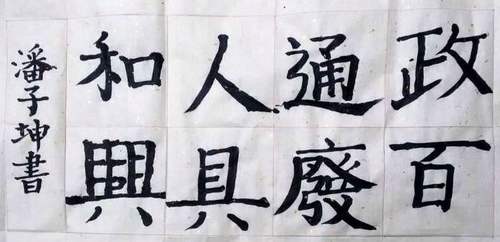 政通人和
百廢具興
潘子坤書